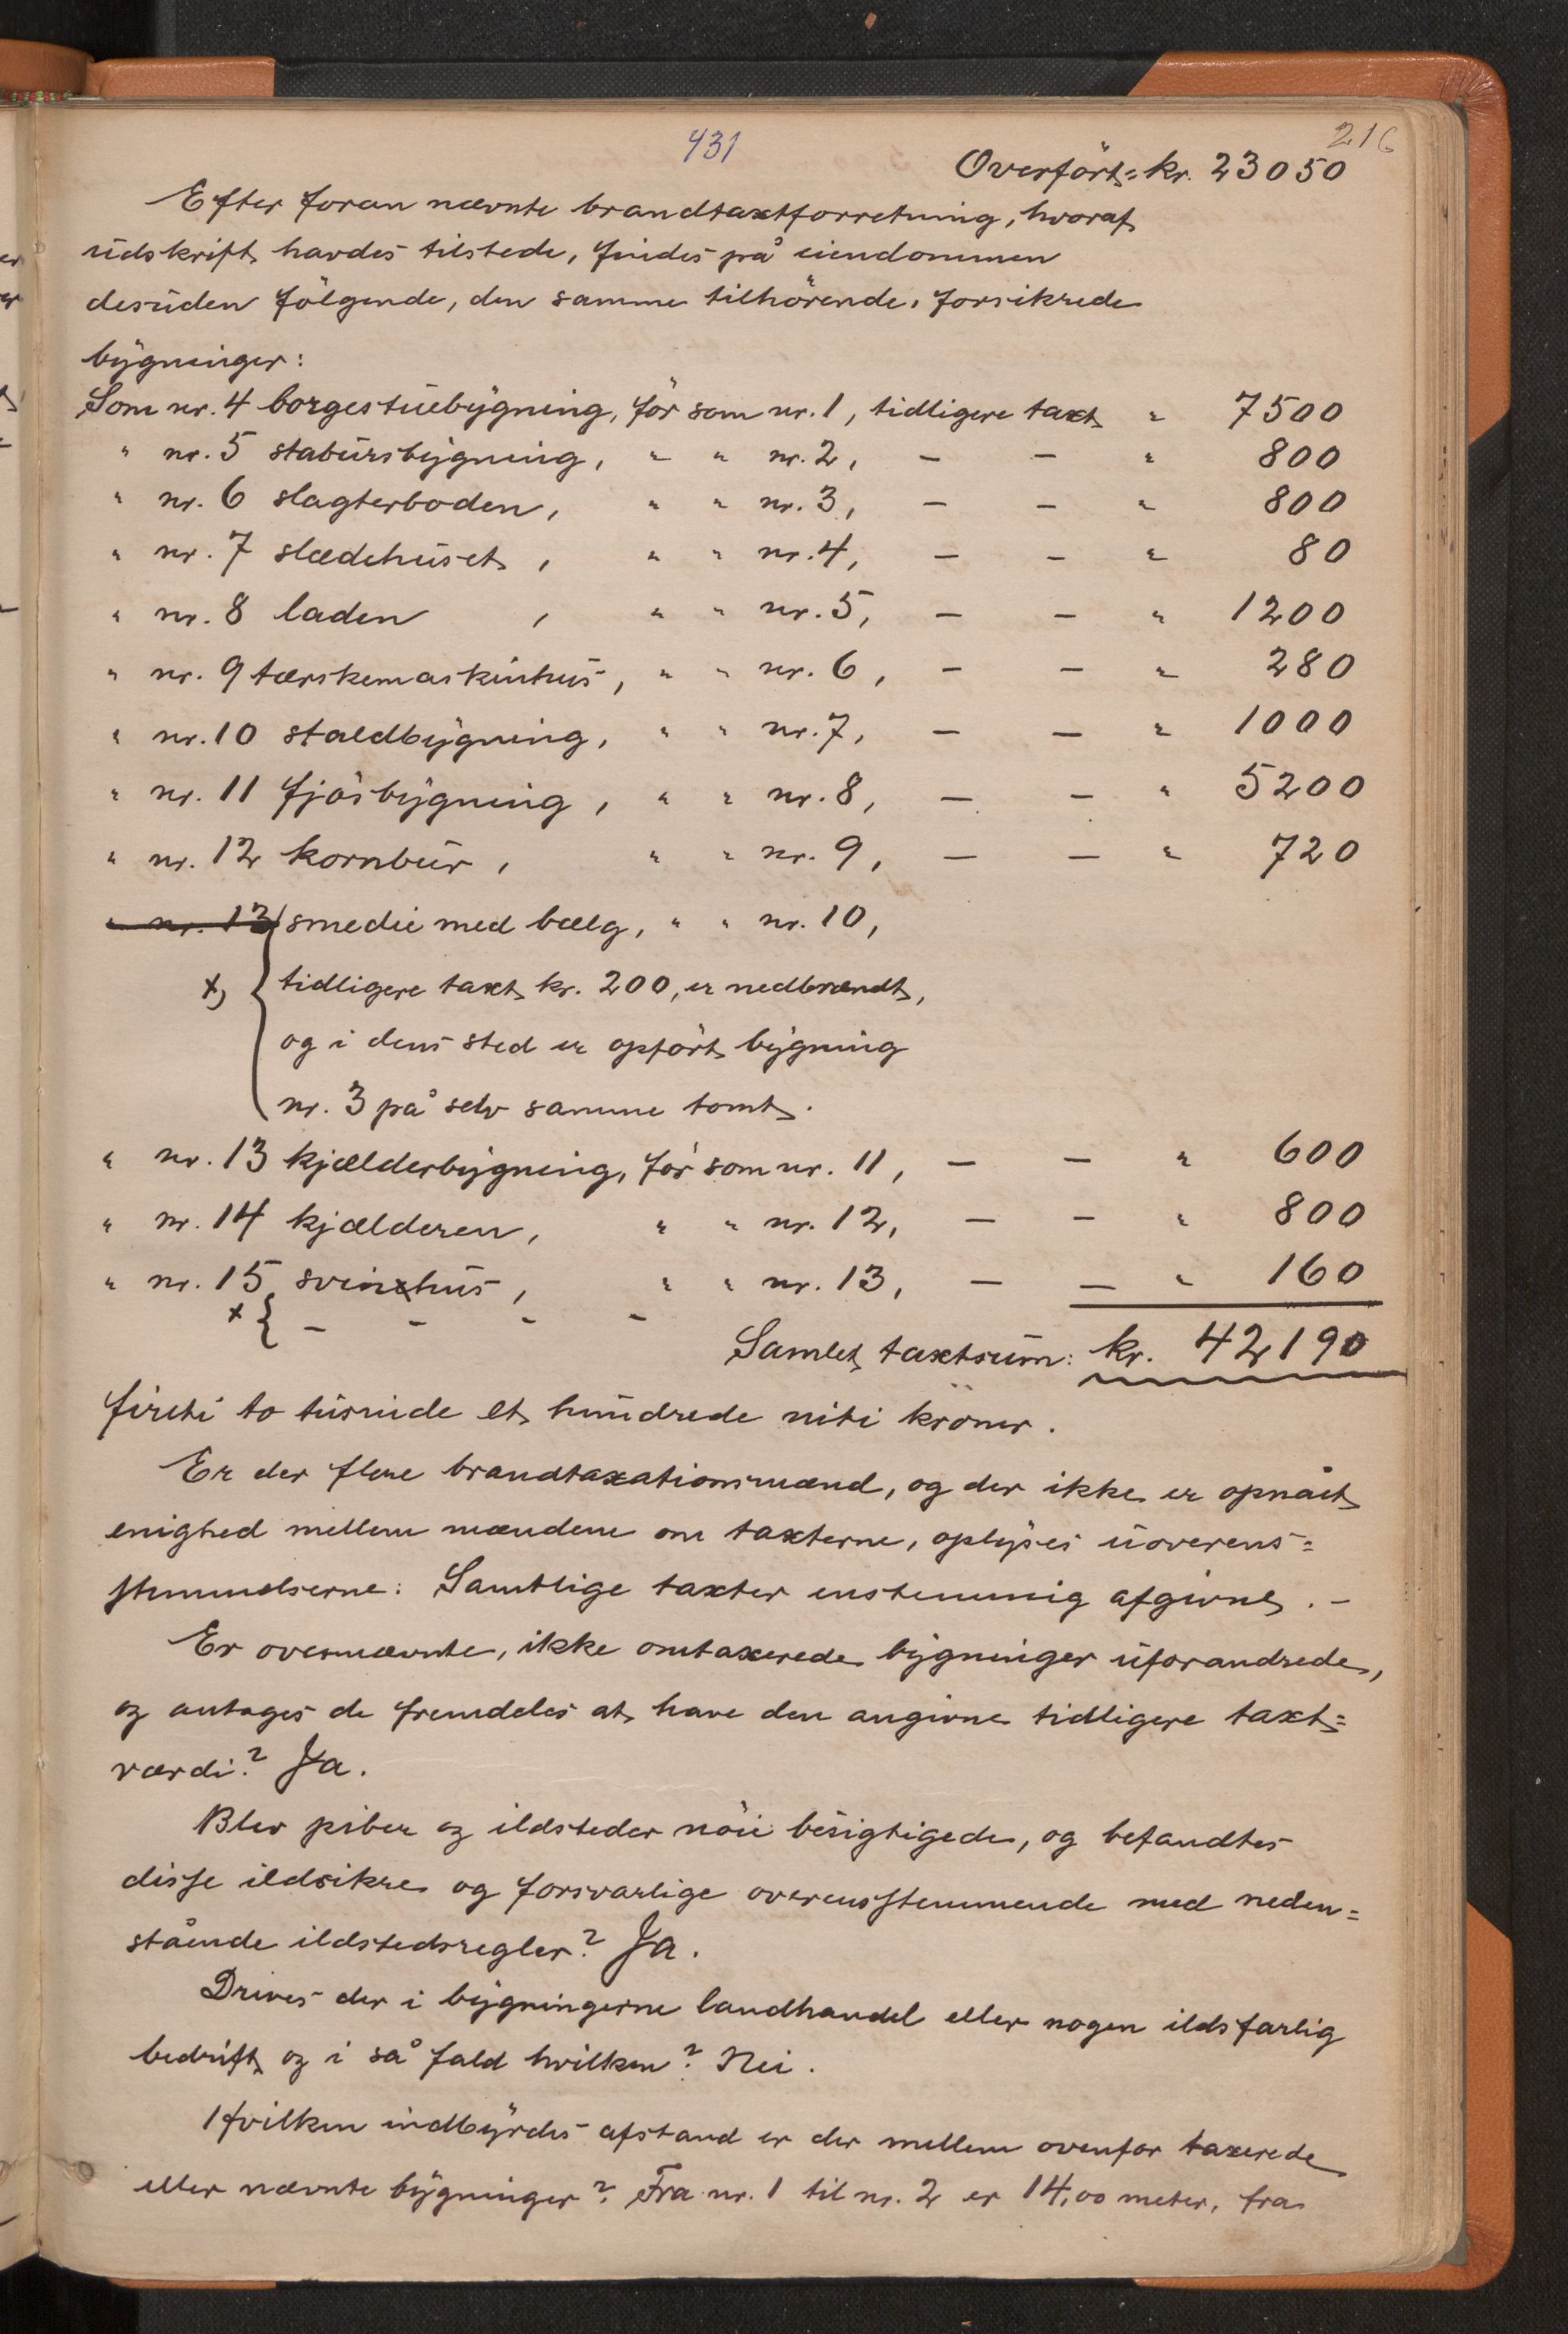 431
216
Overført: kr. 23050
Efter foran nævnte brandtaxtforretning, hvoraf
udskrift havdes tilstede, findes på eiendommen
desuden følgende, den samme tilhörende, forsikrede
bygninger:
Som nr. 4 borgestuebygning, för som nr. 1, tidligere taxt " 7500
" nr. 5 stabursbygning, " " nr. 2, – – " 800
" nr. 6 slagterboden, " " nr. 3, – – " 800
" nr. 7 slædehuset, " " nr. 4, – – " 80
" nr. 8 laden, " " nr. 5, – – " 1200
" nr. 9 tærskemaskinhus, " " nr. 6, – – " 280
" nr. 10 staldbygning, " " nr. 7, – – " 1000
" nr. 11 fjösbygning, " " nr. 8, – – " 5200
" nr. 12 kornbur, " " nr. 9, – – " 720
" nr. 13 smedie med bælg, " " nr. 10,
x) { tidligere taxt kr. 200, er nedbrændt,
og i dens sted er opfört bygning
nr. 3 på selv samme tomt.
" nr. 13 kjælderbygning, för som nr. 11, – – " 600
" nr. 14 kjælderen, " " nr. 12, – – " 800
" nr. 15 svinehus, " " nr. 13, – – " 160
x { – – – –
Samlet taxtsum: kr. 42190
fireti to tusinde et hundrede niti kroner.
Er der flere brandtaxationsmænd, og der ikke er opnået
enighed mellem mændene om taxterne, oplyses uoverens=
stemmelserne: Samtlige taxter enstemmig afgivne. –
Er overnævnte, ikke omtaxerede bygninger uforandrede,
og antages de fremdeles at have den angivne tidligere taxt=
værdi? Ja.
Blev piber og ildsteder nöie besigtigede, og befandtes
disse ildsikre og forsvarlige overensstemmende med neden=
stående ildstedsregler? Ja.
Drives der i bygningerne landhandel eller nogen ildsfarlig
bedrift og i så fald hvilken? Nei.
Hvilken indbyrdes afstand er der mellem ovenfor taxerede
eller nævnte bygninger? Fra nr. 1 til nr. 2 er 14,00 meter, fra